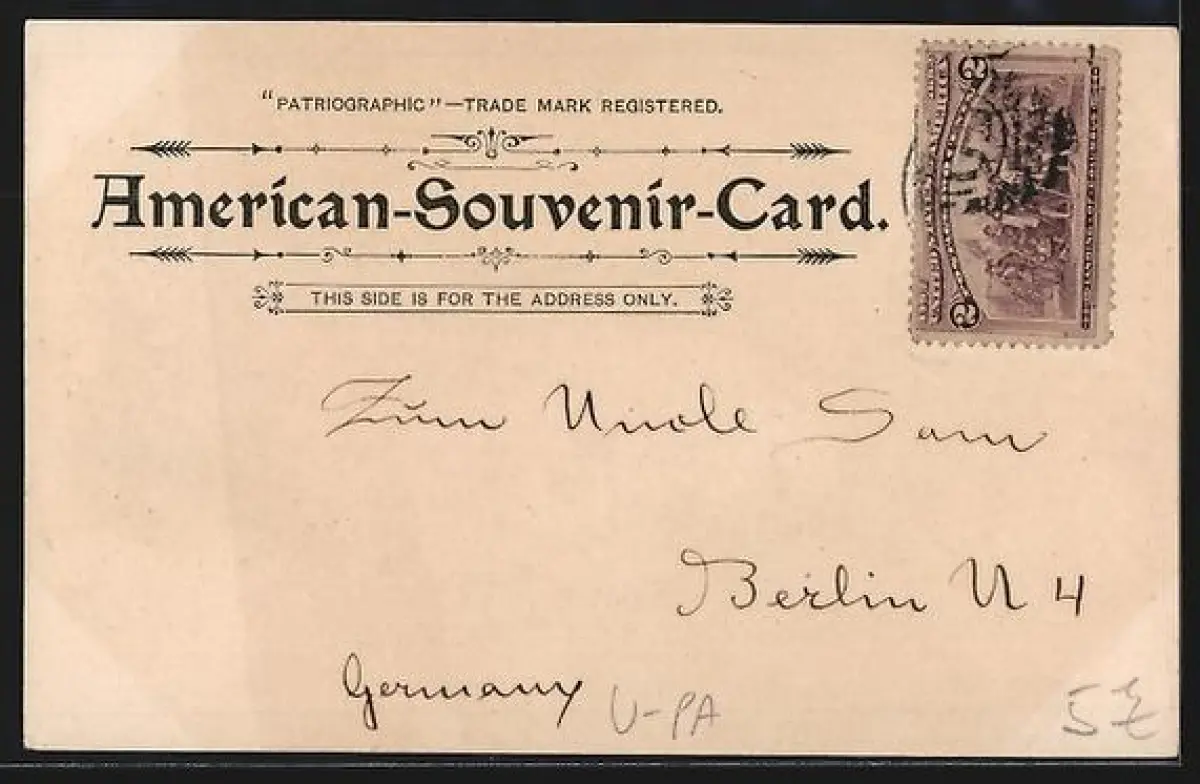 "PATRIOGRAPHIC"—TRADE MARK REGISTERED.
American-Souvenir-Card.
THIS SIDE IS FOR THE ADDRESS ONLY.
2
2
Zum Uncle Sam
Berlin N 4
Germany
U-PA